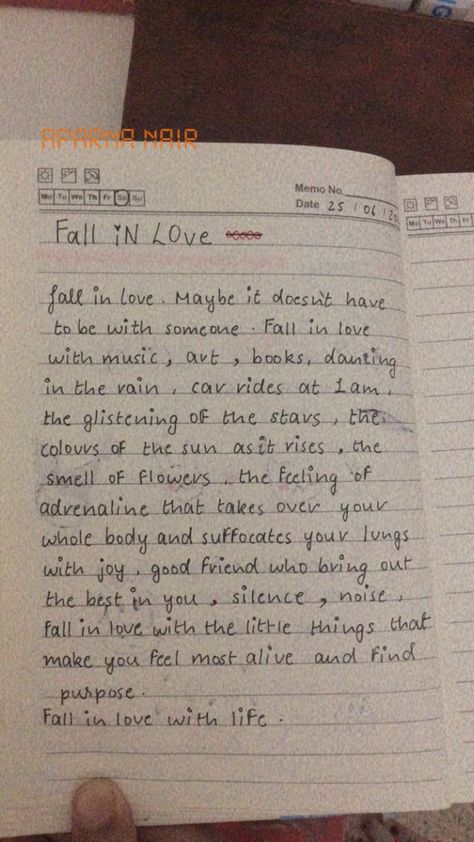 APARNA NAIR
Memo No.
Mo Tu We Th Fr Sa Su
Date 25 / 06 / 20
Mo Tu We Th Fr Sa
Fall iN LOve
fall in love. Maybe it doesn't have
to be with someone. Fall in love
with music, art, books, dancing
in the rain, car rides at 1am,
the glistening of the stars, the
colours of the sun as it rises, the
smell of flowers, the feeling of
adrenaline that takes over your
whole body and suffocates your lungs
with joy, good friend who bring out
the best in you, silence, noise,
fall in love with the little things that
make you feel most alive and find
purpose.
Fall in love with life.